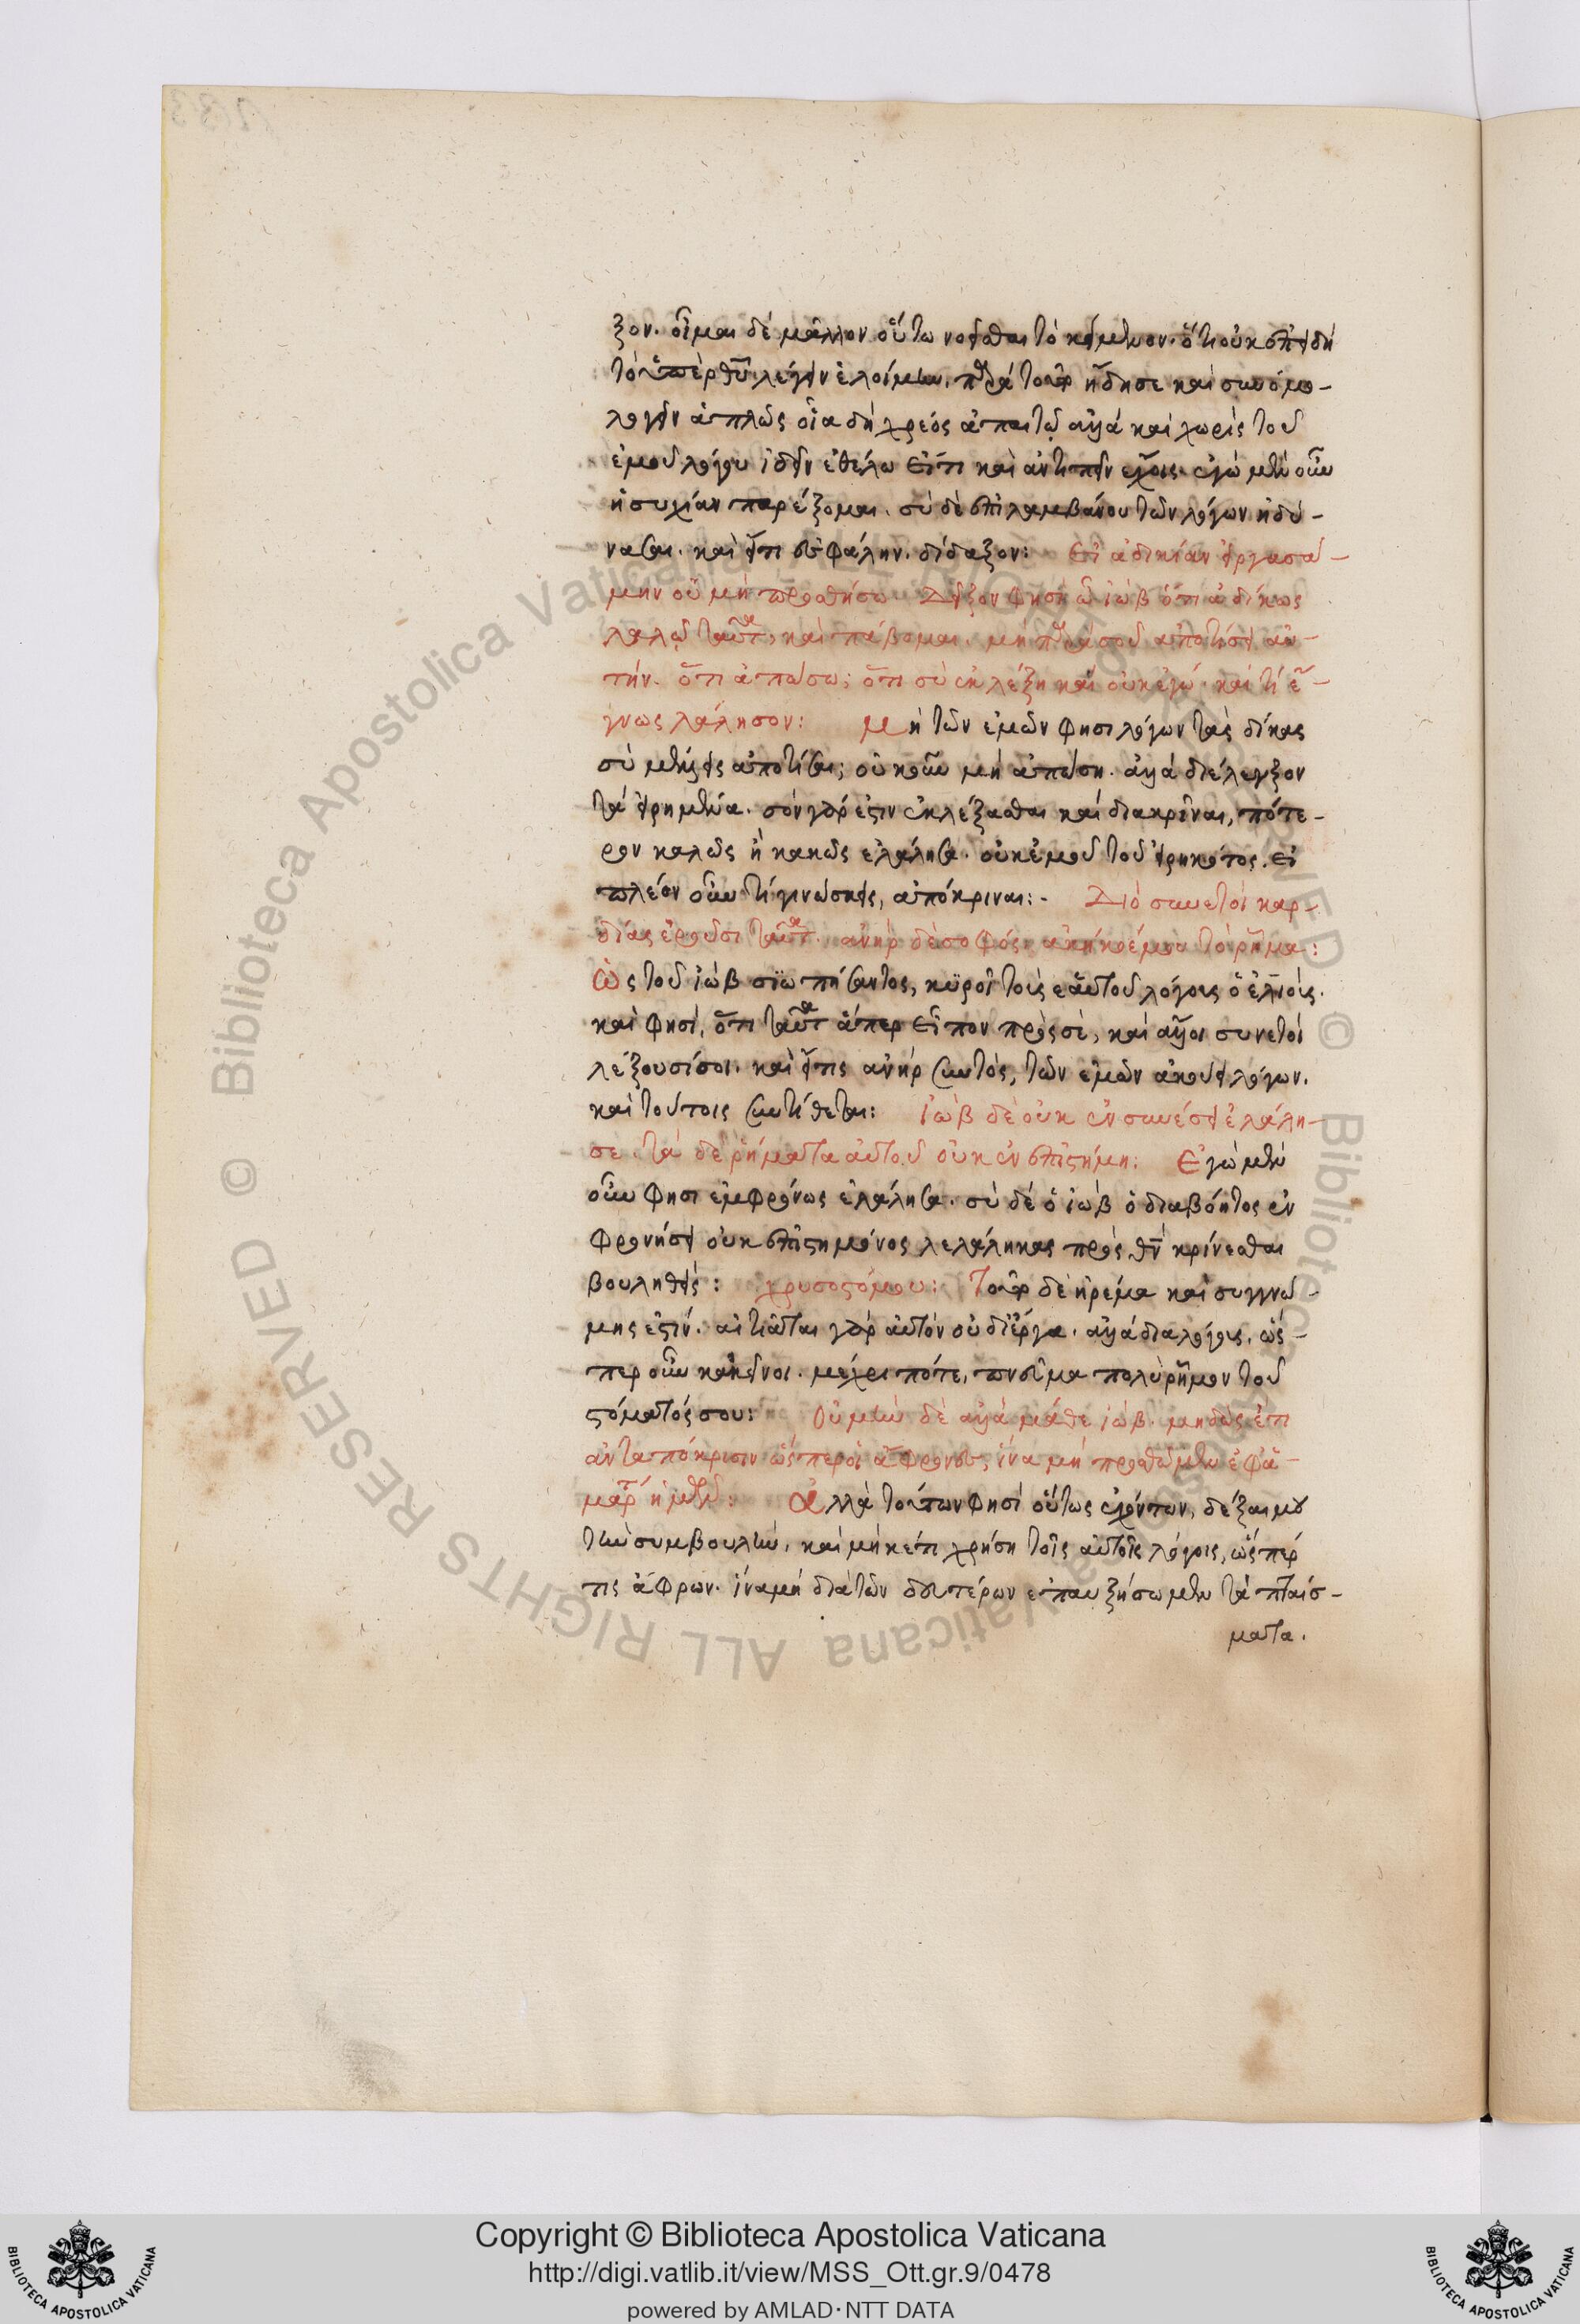 ξον. οἶμαι δὲ μᾶλλον οὕτω νοεῖσθαι τὸ κείμενον. ὅτι οὐκ ἐπειδὴ
τὸ ὑπὲρ θεοῦ λέγειν ἑλοίμην. παρὰ τοῦτο ᾔδησε καὶ συνομο-
λογεῖν ἁπλῶς οἷα δὴ χρέος ἀπαιτῶ ἀλλὰ καὶ χωρὶς τοῦ
ἐμοῦ λόγου ἰδεῖν ἐθέλω εἴ τι καὶ ἀντειπεῖν ἔχοις. ἐγὼ μὲν οὖν
ἡσυχίαν παρέξομαι. σὺ δὲ ἐπιλαμβάνου τῶν λόγων ᾗ δύ-
νασαι. καὶ εἴ τι ἐσφάλην. δίδαξον: Εἰ ἀδικίαν εἰργασά-
μην οὐ μὴ προσθήσω Δεῖξον φησὶν ὦ ἰὼβ ὅτι ἀδίκως
λαλῶ ταῦτα, καὶ παύσομαι. μὴ παρὰ σοῦ ἀποτίσει αὐ-
τήν. ὅτι ἀπώσω; ὅτι σὺ ἐκλέξῃ καὶ οὐκ ἐγώ. καὶ τί ἔ-
γνως λάλησον: Μὴ τῶν ἐμῶν φησι λόγων τὰς δίκας
σὺ μέλλεις ἀποτίσαι; οὐκοῦν μὴ ἀπώσῃ. ἀλλὰ διέλεγξον
τὰ εἰρημένα. σὸν γάρ ἐστιν ἐκλέξασθαι καὶ διακρῖναι, πότε-
ρον καλῶς ἢ κακῶς ἐλάλησα. οὐκ ἐμοῦ τοῦ εἰρηκότος. εἰ
πλέον οὖν τι γινώσκεις, ἀπόκριναι:- Διὸ συνετοὶ καρ-
δίας ἐροῦσι ταῦτα. ἀνὴρ δὲ σοφός ἀκήκοέ μου τὸ ῥῆμα:
Ὡς τοῦ ἰὼβ σιωπήσαντος, κυροῖ τοὺς ἑαυτοῦ λόγους ὁ ἐλιούς.
καὶ φησί, ὅτι ταῦτα ἅπερ εἶπον πρὸς σέ, καὶ ἄλλοι συνετοὶ
λέξουσί σοι. καὶ εἴ τις ἀνὴρ συνετός, τῶν ἐμῶν ἀκούει λόγων.
καὶ τούτοις συντίθεται: Ἰὼβ δὲ οὐκ ἐν συνέσει ἐλάλη-
σε. τὰ δὲ ῥήματα αὐτοῦ οὐκ ἐν ἐπιστήμῃ: Ἐγὼ μὲν
οὖν φησι ἐμφρόνως ἐλάλησα. σὺ δὲ ὁ ἰὼβ ὁ διαβόητος ἐν
φρονήσει οὐκ ἐπιστημόνος λελάληκας πρὸς θεὸν κρίνεσθαι
βουληθείς: χρυσοστόμου: Τοῦτο δὲ ἠρέμα καὶ συγγνώ-
μης ἐστίν. αἰτιᾶται γὰρ αὐτὸν οὐ δι' ἔργα. ἀλλὰ διὰ λόγους. ὥς-
περ οὖν κἀκεῖνοι. μέχρι πότε, πνεῦμα πολυρῆμον τοῦ
στόματός σου: Οὐ μὴν δὲ ἀλλὰ μάθε ἰὼβ. μὴ δῷς ἔτι
ἀνταπόκρισιν ὥσπερ οἱ ἄφρονες, ἵνα μὴ προσθῶμεν ἐφ' ἁ-
μαρτίαις ἡμῶν: Ἀλλὰ τούτων φησὶ οὕτως ἐχόντων, δέξαι μου
τὴν συμβουλὴν, καὶ μηκέτι χρήσῃ τοῖς αὐτοῖς λόγοις, ὥσπερ
τις ἄφρων. ἵνα μὴ διὰ τῶν δευτέρων ἐπαυξήσωμεν τὰ πταίσ-
ματα.
Copyright © Biblioteca Apostolica Vaticana
http://digi.vatlib.it/view/MSS_Ott.gr.9/0478
powered by AMLAD · NTT DATA